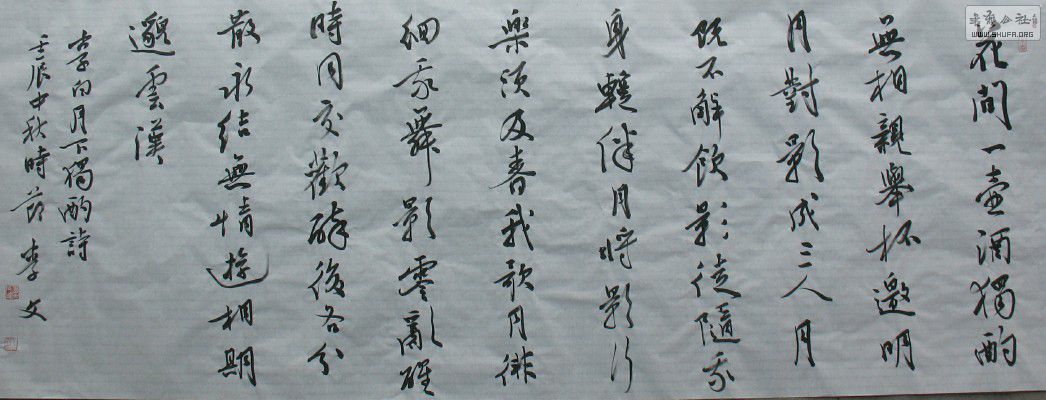 花間一壺酒獨酌
無相親舉杯邀明
月對影成三人月
既不解飲影徒隨我
身暫伴月將影行
樂須及春我歌月徘
徊我舞影零亂醒
時同交歡醉後各分
散永結無情遊相期
邈雲漢
李白月下獨酌詩
壬辰中秋時節 李文
書法公社
WWW.SHUFA.ORG